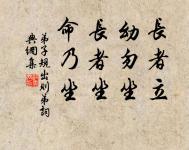 長者立
幼勿坐
長者坐
命乃坐
弟子規出則弟詞
典網集